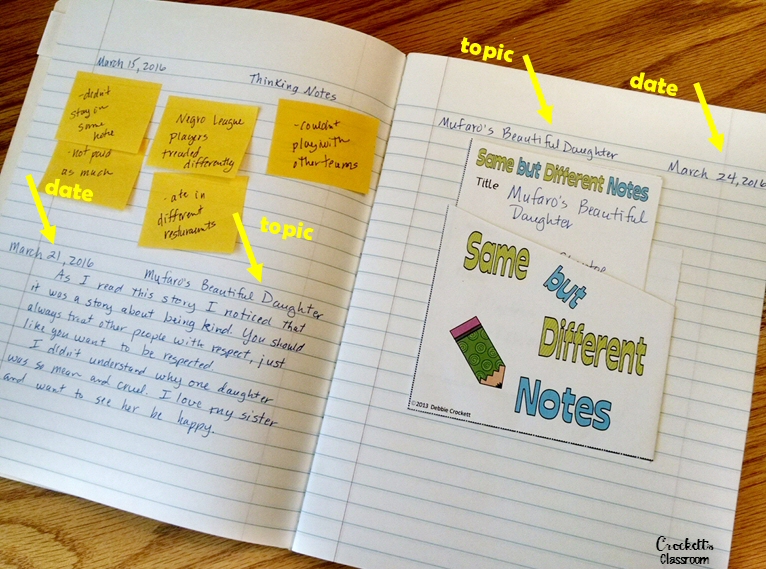 March 15, 2016
Thinking Notes
-didn't
stay in
same
hotel
-not paid
as much
Negro League
players
treaded
differently
-ate in
different
resturaunts
-couldn't
play with
other teams
date
topic
March 21, 2016 Mufaro's Beautiful Daughter
As I read this story I noticed that
it was a story about being kind. You should
always treat other people with respect, just
like you want to be respected
I didn't understand why one daughter
was so mean and cruel. I love my sister
and want to see her be happy.
topic
date
Mufaro's Beautiful Daughter
March 24, 2016
Same but Different Notes
Title Mufaro's Beautiful
Daughter
Same
but
Different
Notes
©2013 Debbie Crockett
Crockett's
Classroom